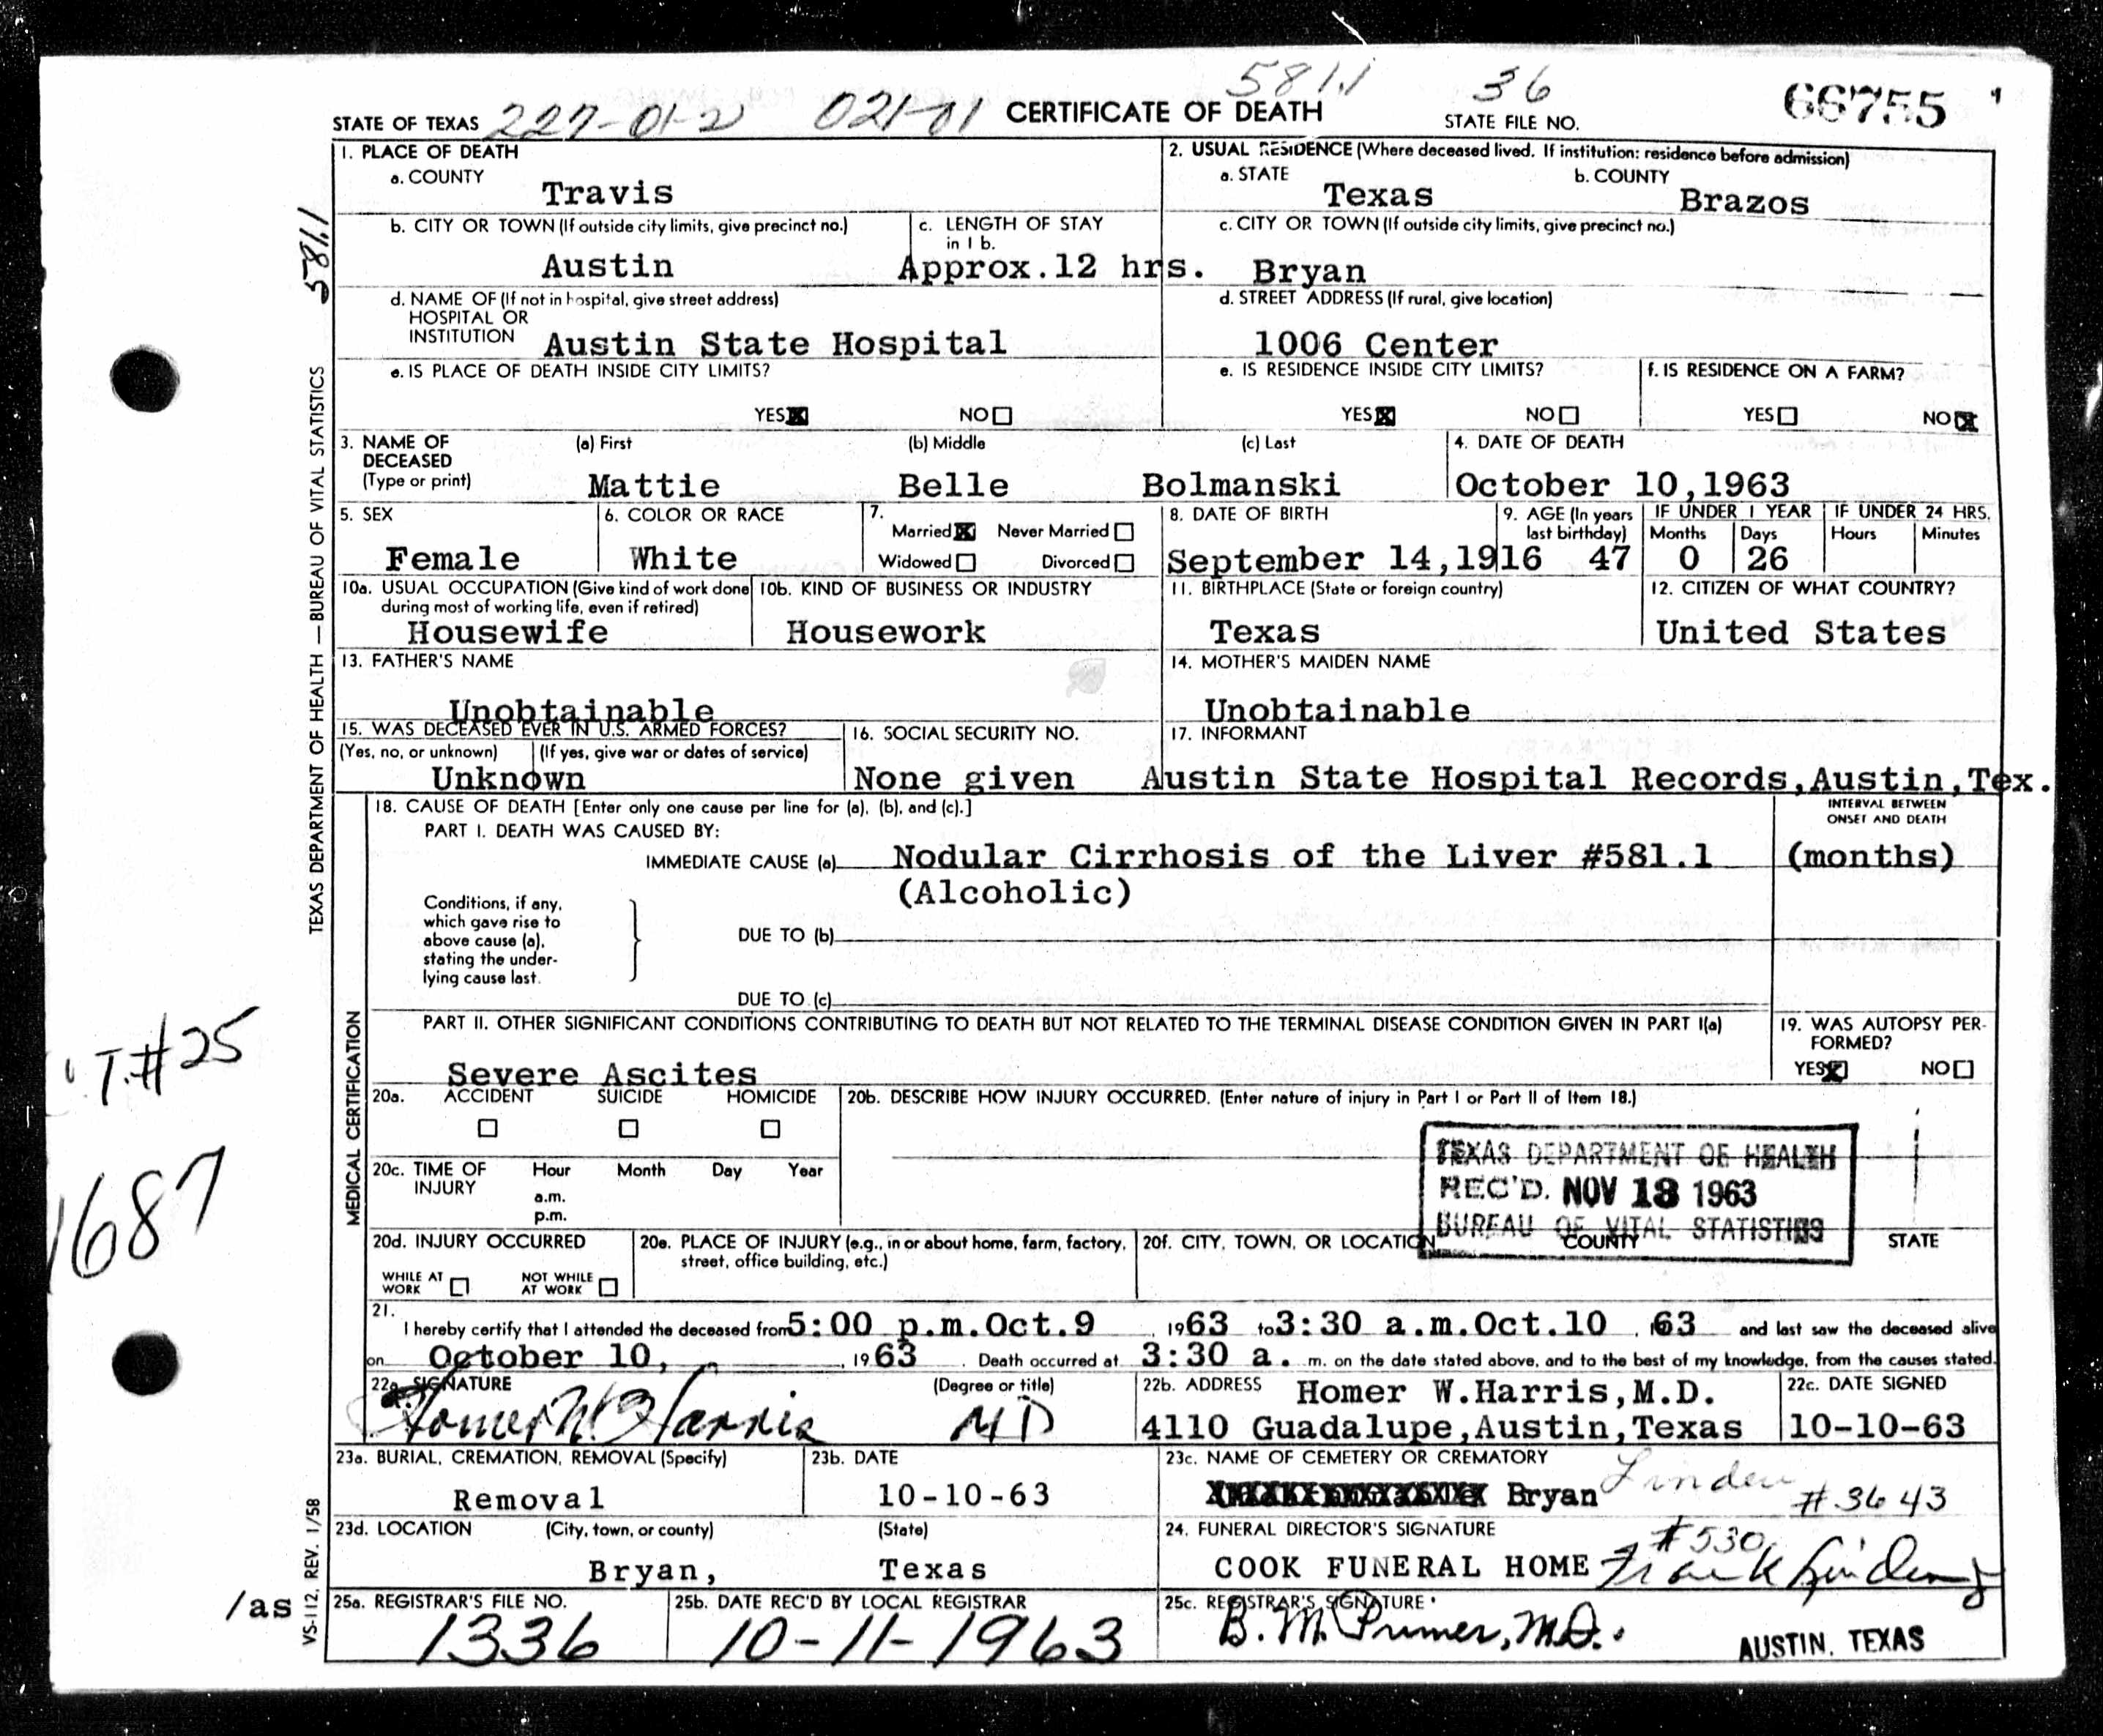 581.1 36
STATE OF TEXAS 227-01-2 021-01 CERTIFICATE OF DEATH STATE FILE NO. 66755
1. PLACE OF DEATH
a. COUNTY Travis
2. USUAL RESIDENCE (Where deceased lived. If institution: residence before admission)
a. STATE Texas b. COUNTY Brazos
b. CITY OR TOWN (If outside city limits, give precinct no.) Austin
c. LENGTH OF STAY in 1 b. Approx.12 hrs.
c. CITY OR TOWN (If outside city limits, give precinct no.) Bryan
d. NAME OF (If not in hospital, give street address)
HOSPITAL OR
INSTITUTION Austin State Hospital
d. STREET ADDRESS (If rural, give location)
1006 Center
e. IS PLACE OF DEATH INSIDE CITY LIMITS?
YES NO
e. IS RESIDENCE INSIDE CITY LIMITS?
YES NO
f. IS RESIDENCE ON A FARM?
YES NO
3. NAME OF DECEASED (Type or print)
(a) First Mattie (b) Middle Belle (c) Last Bolmanski
4. DATE OF DEATH
October 10,1963
5. SEX
Female
6. COLOR OR RACE
White
7. Married Never Married
Widowed Divorced
8. DATE OF BIRTH
September 14,1916
9. AGE (In years last birthday) 47
IF UNDER 1 YEAR
Months 0 Days 26
IF UNDER 24 HRS.
Hours Minutes
10a. USUAL OCCUPATION (Give kind of work done
during most of working life, even if retired)
Housewife
10b. KIND OF BUSINESS OR INDUSTRY
Housework
11. BIRTHPLACE (State or foreign country)
Texas
12. CITIZEN OF WHAT COUNTRY?
United States
13. FATHER'S NAME
Unobtainable
14. MOTHER'S MAIDEN NAME
Unobtainable
15. WAS DECEASED EVER IN U.S. ARMED FORCES?
(Yes, no, or unknown) (If yes, give war or dates of service)
Unknown
16. SOCIAL SECURITY NO.
None given
17. INFORMANT
Austin State Hospital Records,Austin,Tex.
18. CAUSE OF DEATH [Enter only one cause per line for (a), (b), and (c).]
PART I. DEATH WAS CAUSED BY:
INTERVAL BETWEEN
ONSET AND DEATH
IMMEDIATE CAUSE (a) Nodular Cirrhosis of the Liver #581.1 (months)
(Alcoholic)
Conditions, if any,
which gave rise to
above cause (a),
stating the under-
lying cause last.
DUE TO (b)
DUE TO (c)
PART II. OTHER SIGNIFICANT CONDITIONS CONTRIBUTING TO DEATH BUT NOT RELATED TO THE TERMINAL DISEASE CONDITION GIVEN IN PART I(a)
Severe Ascites
19. WAS AUTOPSY PER-
FORMED?
YES NO
20a. ACCIDENT SUICIDE HOMICIDE
20b. DESCRIBE HOW INJURY OCCURRED. (Enter nature of injury in Part I or Part II of Item 18.)
20c. TIME OF INJURY Hour Month Day Year
a.m.
p.m.
TEXAS DEPARTMENT OF HEALTH
REC'D. NOV 18 1963
BUREAU OF VITAL STATISTICS
20d. INJURY OCCURRED
WHILE AT WORK NOT WHILE AT WORK
20e. PLACE OF INJURY (e.g., in or about home, farm, factory,
street, office building, etc.)
20f. CITY, TOWN, OR LOCATION COUNTY STATE
21.
I hereby certify that I attended the deceased from 5:00 p.m.Oct.9, 1963 to 3:30 a.m.Oct.10, 63 and last saw the deceased alive
on October 10, , 1963. Death occurred at 3:30 a. m. on the date stated above, and to the best of my knowledge, from the causes stated.
22a. SIGNATURE (Degree or title)
Homer W Harris MD
22b. ADDRESS Homer W.Harris,M.D.
4110 Guadalupe,Austin,Texas
22c. DATE SIGNED
10-10-63
23a. BURIAL, CREMATION, REMOVAL (Specify)
Removal
23b. DATE
10-10-63
23c. NAME OF CEMETERY OR CREMATORY
Bryan Linden #3643
23d. LOCATION (City, town, or county) (State)
Bryan, Texas
24. FUNERAL DIRECTOR'S SIGNATURE #530
COOK FUNERAL HOME Frank
25a. REGISTRAR'S FILE NO.
1336
25b. DATE REC'D BY LOCAL REGISTRAR
10-11-1963
25c. REGISTRAR'S SIGNATURE
B. M. Primer, M.D.
AUSTIN, TEXAS
581.1
TEXAS DEPARTMENT OF HEALTH — BUREAU OF VITAL STATISTICS
MEDICAL CERTIFICATION
VS-112, REV. 1/58
T.#25
1687
/as